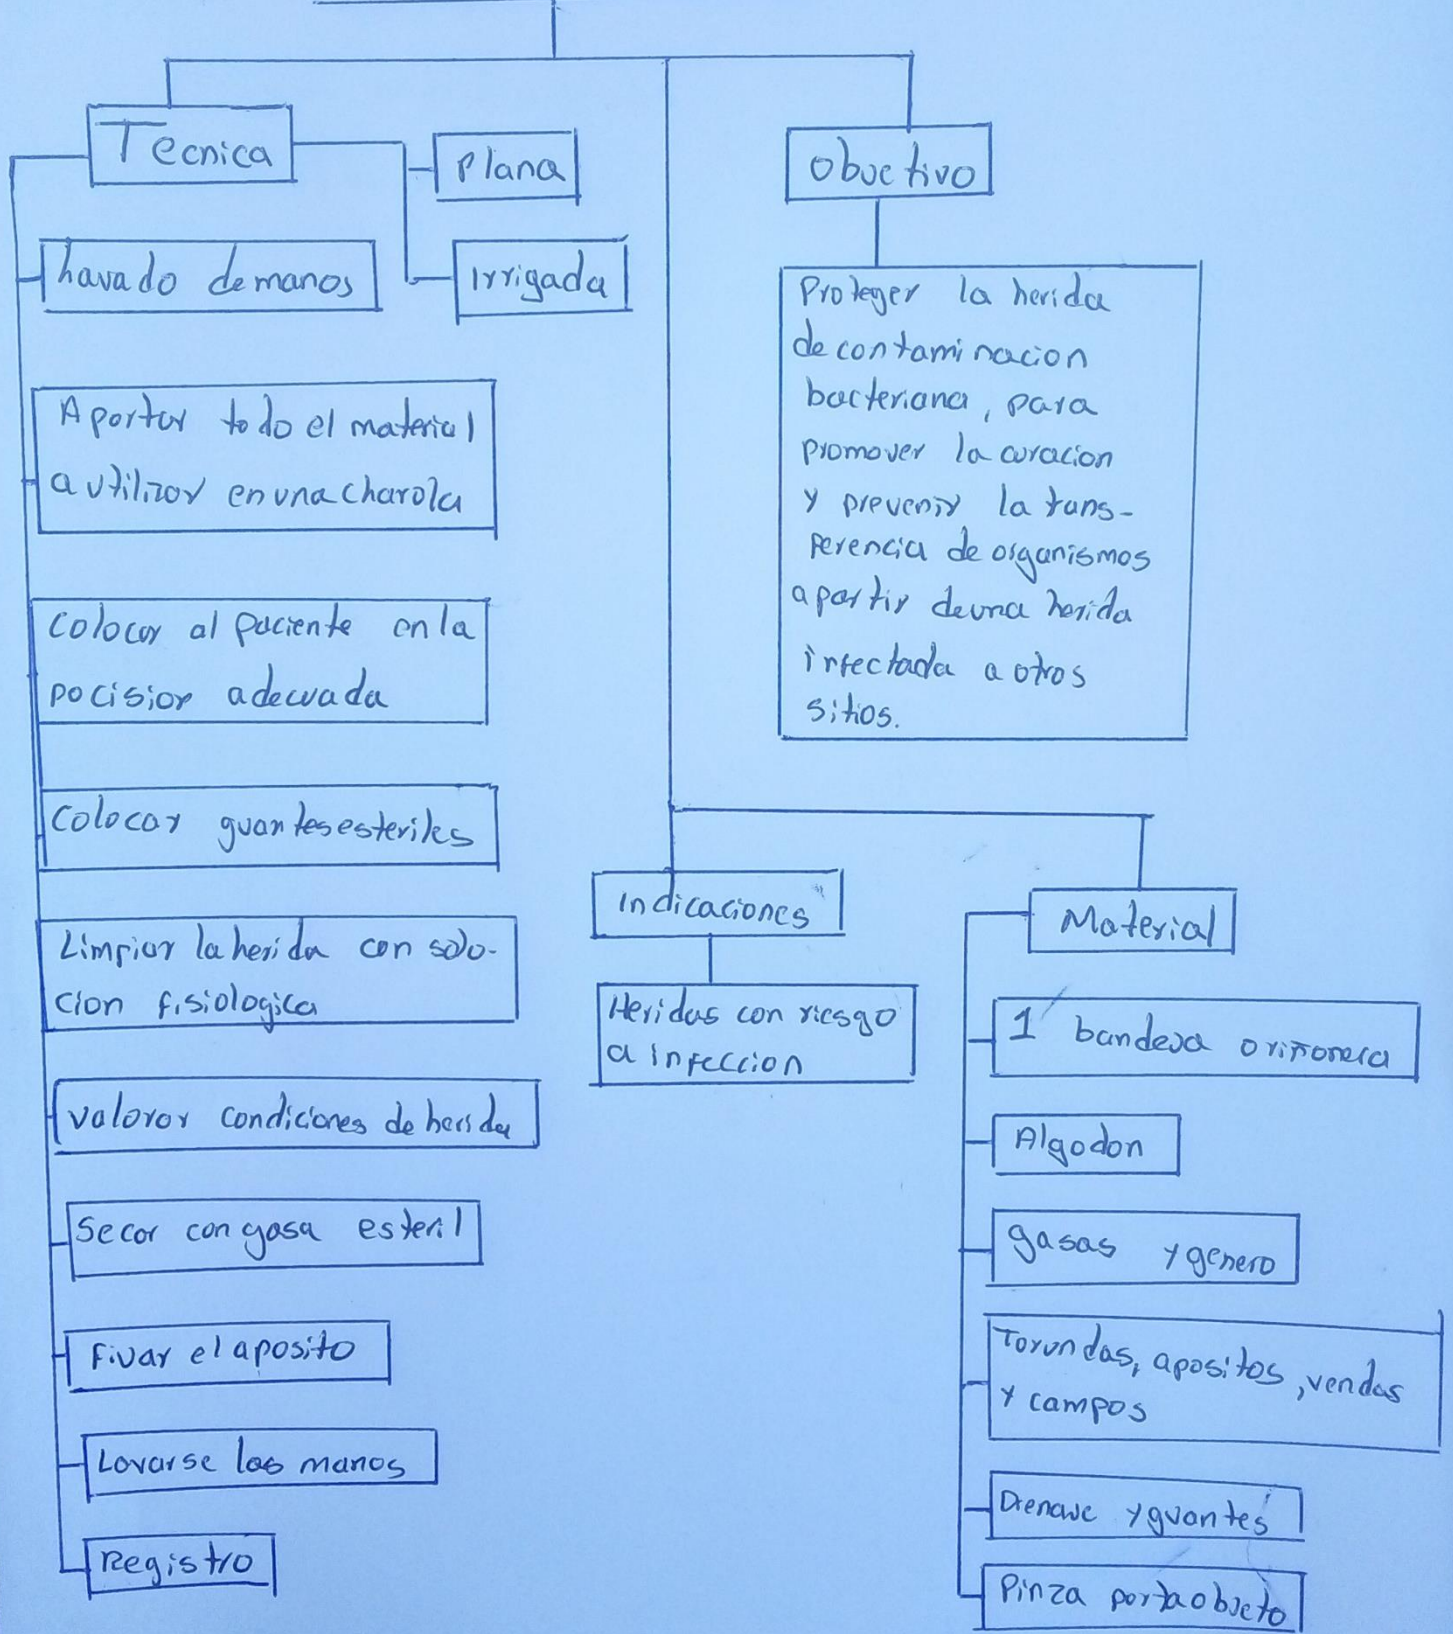 Tecnica
Plana
Irrigada
Lavado de manos
Aportar todo el material
a utilizar en una charola
Colocar al paciente en la
pocision adecuada
Colocar guantes esteriles
Limpiar la herida con solo-
cion fisiologica
Valorar condiciones de herida
Secar con gasa esteril
Fijar el aposito
Lavarse las manos
Registro
Objetivo
Proteger la herida
de contaminacion
bacteriana, para
promover la curacion
y prevenir la tans-
ferencia de organismos
apartir de una herida
infectada a otros
sitios.
Indicaciones
Heridas con riesgo
a infeccion
Material
1 bandeja o riñonera
Algodon
gasas y genero
Torundas, apositos, vendas
y campos
Drenaje y guantes
Pinza portaobjeto